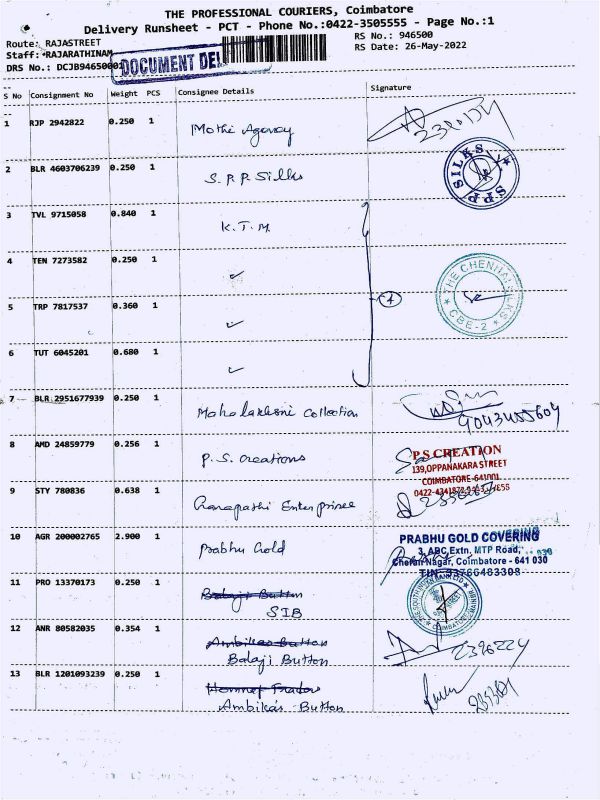 THE PROFESSIONAL COURIERS, Coimbatore
Delivery Runsheet - PCT - Phone No.:0422-3505555 - Page No.:1
Route: RAJASTREET RS No.: 946500
Staff: RAJARATHINAM RS Date: 26-May-2022
DRS No.: DCJB94650001 DOCUMENT DEL
S No Consignment No Weight PCS Consignee Details Signature
1 RJP 2942822 0.250 1 Mothi Agency
2 BLR 4603706239 0.250 1 S.P.P. Silks SPP SILKS
3 TVL 9715058 0.840 1 K.T.M
4 TEN 7273582 0.250 1 ✓ THE CHENNAI SILKS CBE-2
5 TRP 7817537 0.360 1 ✓ 4
6 TUT 6045201 0.680 1 ✓
7 BLR 2951677939 0.250 1 Mahalakhsni Collection 9043455604
8 AMD 24859779 0.256 1 P.S. Creations P S CREATION
139,OPPANAKARA STREET
COIMBATORE-641001
9 STY 780836 0.638 1 Ganapathi Enterprises
10 AGR 200002765 2.900 1 Prabhu Gold PRABHU GOLD COVERING
3, ABC Extn, MTP Road,
Cheran Nagar, Coimbatore - 641 030
TIN 33766483308
11 PRO 13370173 0.250 1 Balaji Button
SIB
12 ANR 80582035 0.354 1 Ambikas Button
Balaji Button 2396224
13 BLR 1201093239 0.250 1
Ambika's Button